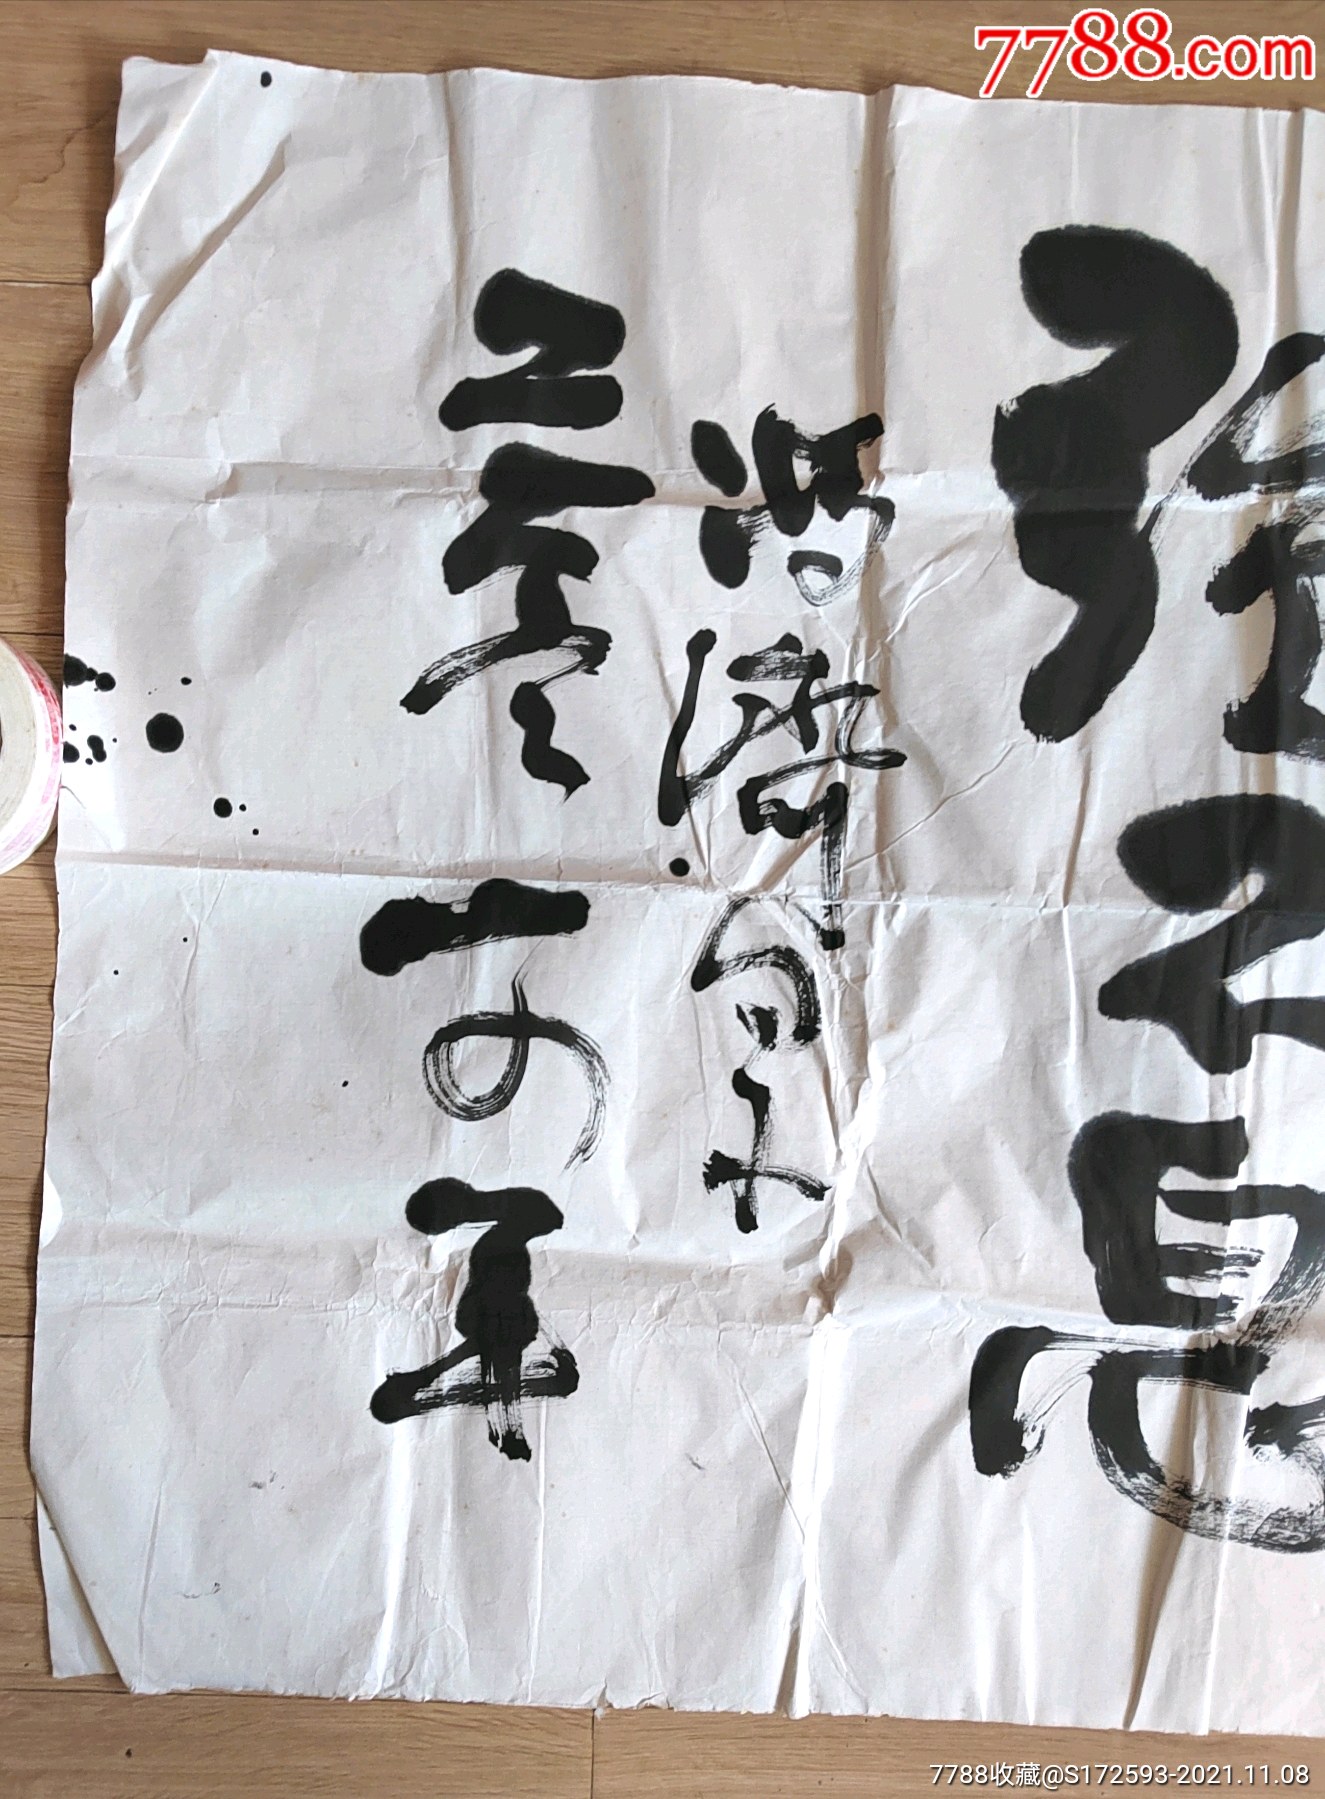 7788.com
强不息
冯济泉
年
7788收藏@S172593-2021.11.08